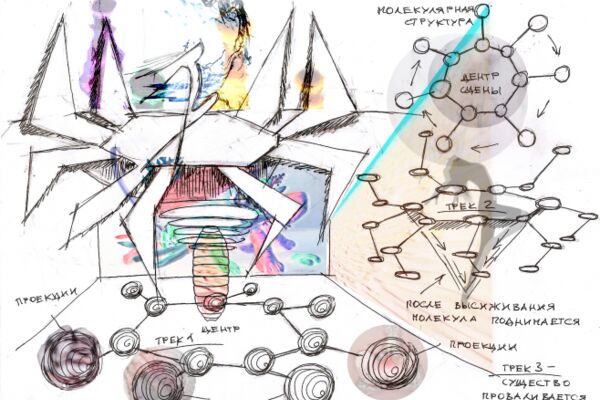 МОЛЕКУЛЯРНАЯ
СТРУКТУРА
ЦЕНТР
СЦЕНЫ
ТРЕК 2
ПОСЛЕ ВЫСИЖИВАНИЯ
МОЛЕКУЛА ПОДНИМАЕТСЯ
ПРОЕКЦИИ
ЦЕНТР
ТРЕК 1
ПРОЕКЦИИ
ТРЕК 3 -
СУЩЕСТВО
ПРОВАЛИВАЕТСЯ